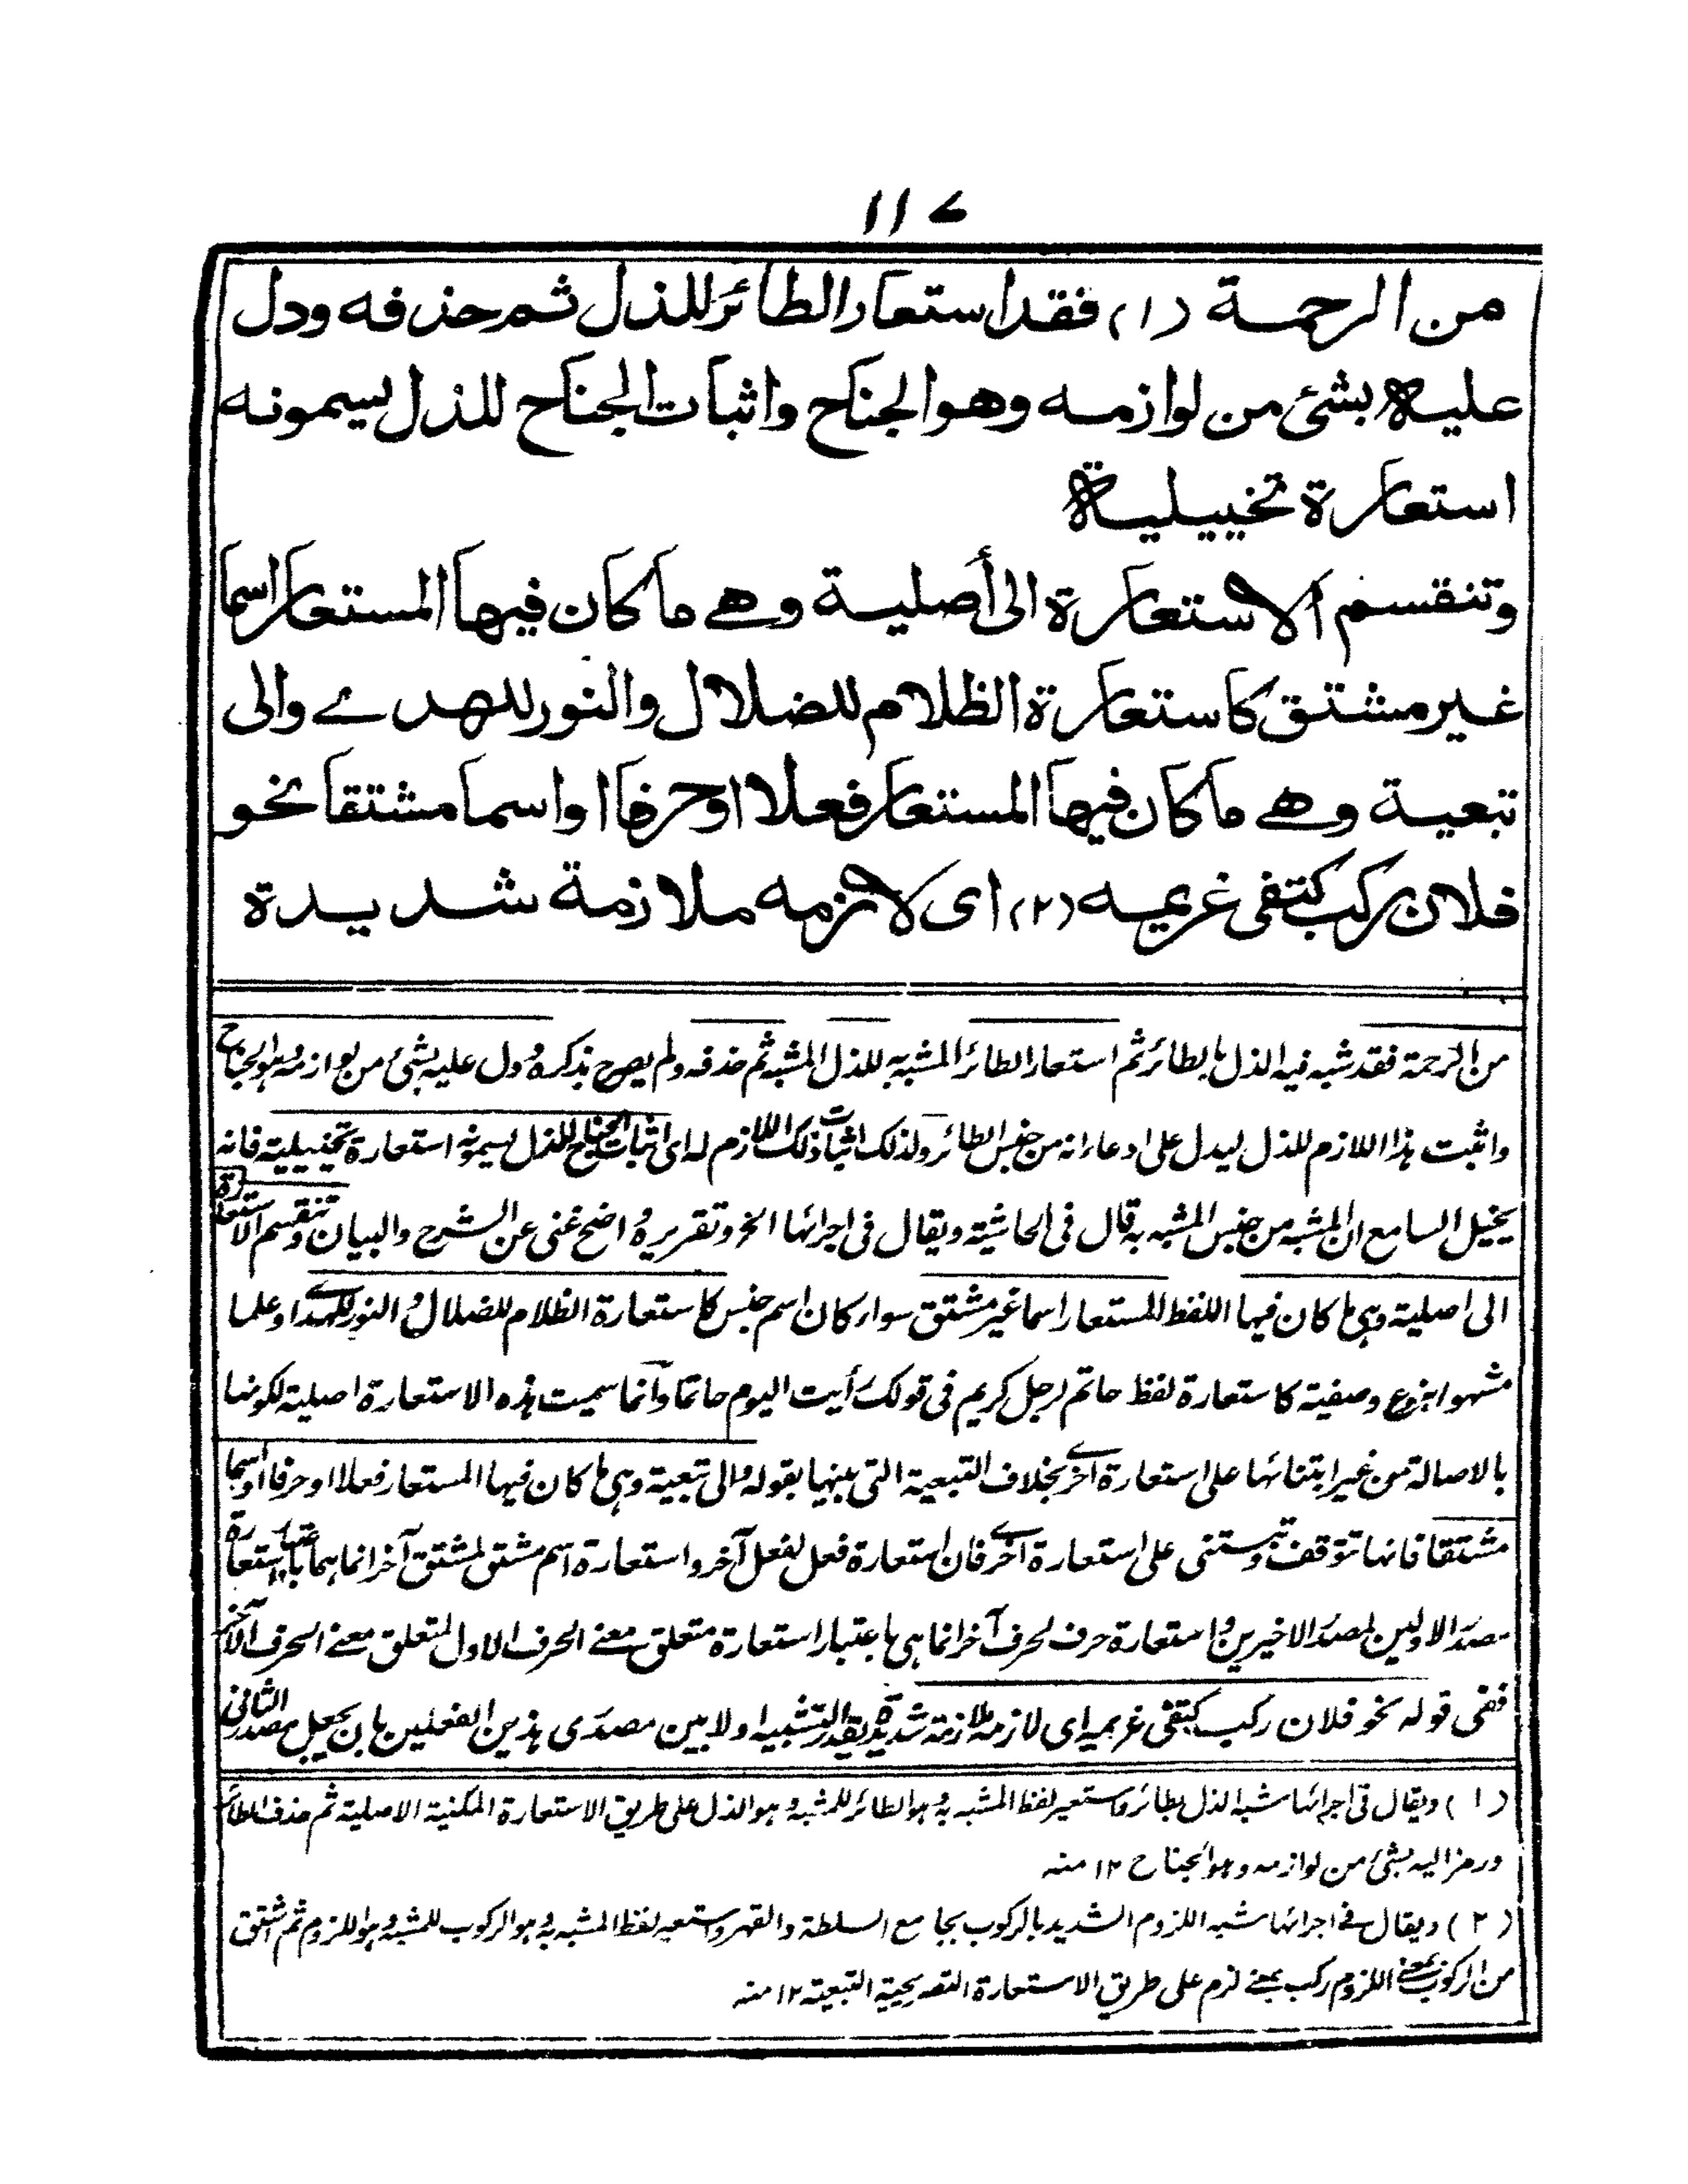 ١١٧
من الرحمة (١) فقد استعار الطائر للذل ثم حذفه ودل
عليه بشئ من لوازمه وهو الجناح واثبات الجناح للذل يسمونه
استعارة تخييلية
وتنقسم الاستعارة الى أصلية وهے ما كان فيها المستعار اسما
غير مشتق كاستعارة الظلام للضلال والنور للهدے والى
تبعية وهے ما كان فيها المستعار فعلا او حرفا او اسما مشتقا نحو
فلان ركب كتفى غريمه (٢) اى لازمه ملازمة شديدة
من الرحمة فقد شبه فيه الذل بالطائر ثم استعار الطائر المشبه به للذل المشبه ثم حذفه ولم يصرح بذكره ودل عليه بشئ من لوازمه وهو الجناح
واثبت هذا اللازم للذل ليدل على ادعاء انه من جنس الطائر ولذلك اثبات ذلك اللازم له اى اثبات الجناح للذل يسمونه استعارة تخييلية فانه
يخيل السامع ان المشبه من جنس المشبه به قال فى الحاشية ويقال فى اجرائها الخ وتقريره واضح غنى عن الشرح والبيان وتنقسم الاستعارة
الى اصلية وهى ما كان فيها اللفظ المستعار اسما غير مشتق سواء كان اسم جنس كاستعارة الظلام للضلال والنور للهدے او علما
مشهورا بنوع وصفية كاستعارة لفظ حاتم لرجل كريم فى قولك رأيت اليوم حاتما وانما سميت هذه الاستعارة اصلية لكونها
بالاصالة من غير ابتنائها على استعارة اخرے بخلاف التبعية التى بينها بقوله والى تبعية وهى ما كان فيها المستعار فعلا او حرفا او اسما
مشتقا فانها تتوقف وتبتنى على استعارة اخرے فان استعارة فعل لفعل آخر واستعارة اسم مشتق لمشتق آخر انما هما باعتبار استعارة
مصدر الاولين لمصدر الاخيرين واستعارة حرف لحرف آخر انما هى باعتبار استعارة متعلق معنے الحرف الاول لمتعلق معنے الحرف الآخر
ففى قوله نحو فلان ركب كتفى غريمه اى لازمه ملازمة شديدة يقدر التشبيه اولا بين مصدرى هذين الفعلين بان يجعل مصدر الثانى
(١) ويقال فى اجرائها شبه الذل بطائر واستعير لفظ المشبه به وهو الطائر للمشبه وهو الذل على طريق الاستعارة المكنية الاصلية ثم حذف الطائر
ورمز اليه بشئ من لوازمه وهو الجناح ١٢ منه
(٢) ويقال فے اجرائها شبه اللزوم الشديد بالركوب بجامع السلطة والقهر واستعير لفظ المشبه به وهو الركوب للمشبه وهو اللزوم ثم اشتق
من الركوب بمعنے اللزوم ركب بمعنے لزم على طريق الاستعارة التصريحية التبعية ١٢ منه